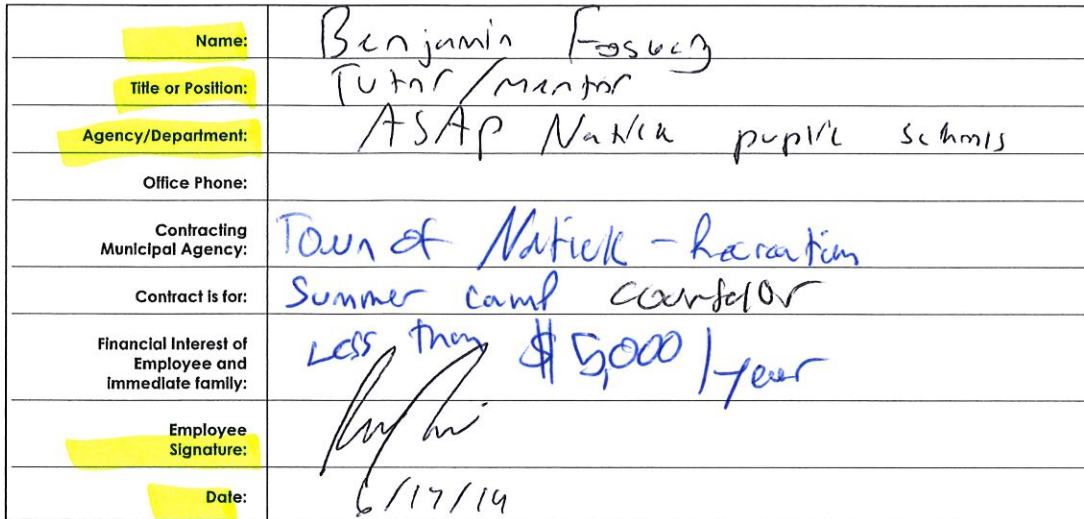 Name: Benjamin
Title or Position: Tutor/mentor
Agency/Department: ASAP Natick puplic schools
Office Phone:
Contracting
Municipal Agency: Town of Natick - Recreation
Contract is for: Summer camp counselor
Financial Interest of
Employee and
immediate family: Less than $5,000/year
Employee
Signature:
Date: 6/17/14